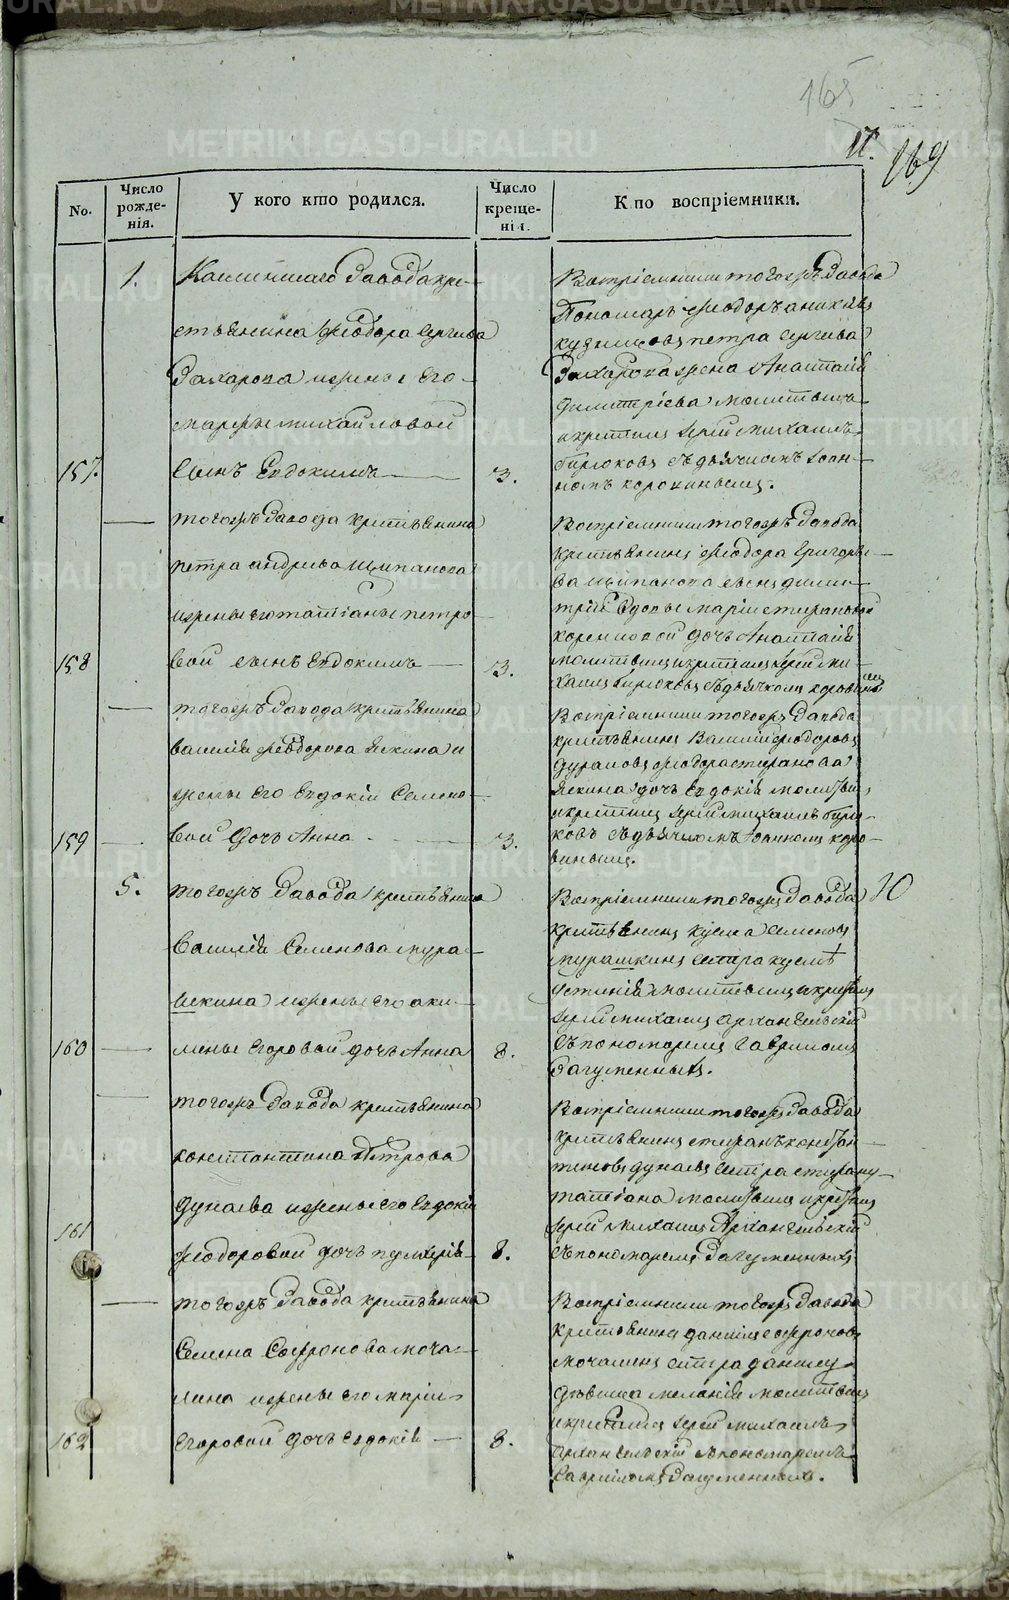 165
17.
169
No.
Число рожденія.
У кого кто родился.
Число крещенія.
Кто воспріемники.
1.
Каслинскаго Завода кре-
стьянина Феодора Сергѣева
Захарова и жены его
Марѳы Михайловой
157. Сынъ Евдокимъ 3.
Воспріемники тогожъ Завода
Пономарь Феодоръ
Петра Сергѣева
Захарова жена Анастасія
Димитріева молитвилъ
и крестилъ Іерей Михаилъ
Бирюковъ съ дьячкомъ Іоан-
номъ Коровинымъ.
тогожъ Завода крестьянина
Петра Андреева Щипанова
и жены его Татіаны Петро-
158 вой сынъ Евдокимъ 3.
Воспріемники тогожъ Завода
крестьянинъ Феодора Григорье-
ва Щипанова сынъ Дими-
трій вдовы Маріи Стефановой
дочь Анастасія
молитвилъ и крестилъ Іерей Ми-
хаилъ Бирюковъ съ дьячкомъ Коровинымъ
тогожъ Завода крестьянина
Василія Феодорова Якина и
жены его Евдокіи Семено-
159 вой дочь Анна 3.
Воспріемники тогожъ Завода
крестьянинъ Василій Феодоровъ
Дураковъ Феодора Стефанова
Якина дочь Евдокія молитвилъ
и крестилъ Іерей Михаилъ Бирю-
ковъ съ дьячкомъ Іоанномъ Коро-
винымъ.
5. тогожъ Завода крестьянина
Василія Семенова Мура-
шкина и жены его Аки-
160 лины Егоровой дочь Анна 8.
Воспріемники тогожъ Завода
крестьянинъ Кузма Семеновъ
Мурашкинъ сестра Кузмѣ
Устинія молитвилъ и крестилъ
Іерей Михаилъ Архангельскій
съ пономаремъ Гавріиломъ
Загуменныхъ.
Ю
тогожъ Завода крестьянина
Константина Петрова
Дунаева и жены его Евдокіи
161 Феодоровой дочь Пулхерія 8.
Воспріемники тогожъ Завода
крестьянинъ Стефанъ Констан-
тиновъ Дунаевъ сестра Стефану
Татіана молитвилъ и крестилъ
Іерей Михаилъ Архангельскій
съ пономаремъ Загуменныхъ
тогожъ Завода крестьянина
Семена Софронова Моча-
лина и жены его Маріи
162 Егоровой дочь Евдокія 8.
Воспріемники тогожъ Завода
крестьянинъ Даніилъ Софроновъ
Мочалинъ сестра Данилу
дѣвица Меланія молитвилъ
и крестилъ Іерей Михаилъ
Архангельскій съ пономаремъ
Гавріиломъ Загуменныхъ.
METRIKI.GASO-URAL.RU